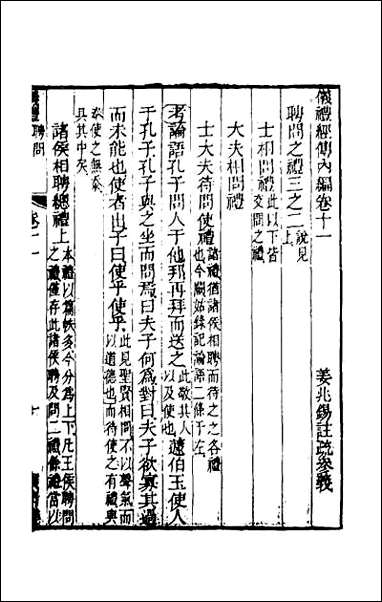 儀禮經傳內編卷十一
姜兆錫註疏參義
聘問之禮三之二說見上
士相問禮此以下皆交問之禮
大夫相問禮
士大夫待問使禮諸禮猶諸侯相聘而待之之各禮也今闕姑錄記論語二條于左
考論語孔子問人于他邦再拜而送之此敬其人以及使也蘧伯玉使人
于孔子孔子與之坐而問焉曰夫子何為對曰夫子欲寡其過
而未能也使者出子曰使乎使乎此見聖賢相問不以聲氣而以道德也而待使之有禮與
奉使之無忝
具其中矣
諸侯相聘總禮上本禮以篇帙多今分為上下凡王侯聘問之禮僅存此諸侯聘及問二禮餘禮當以
聘問
卷十一